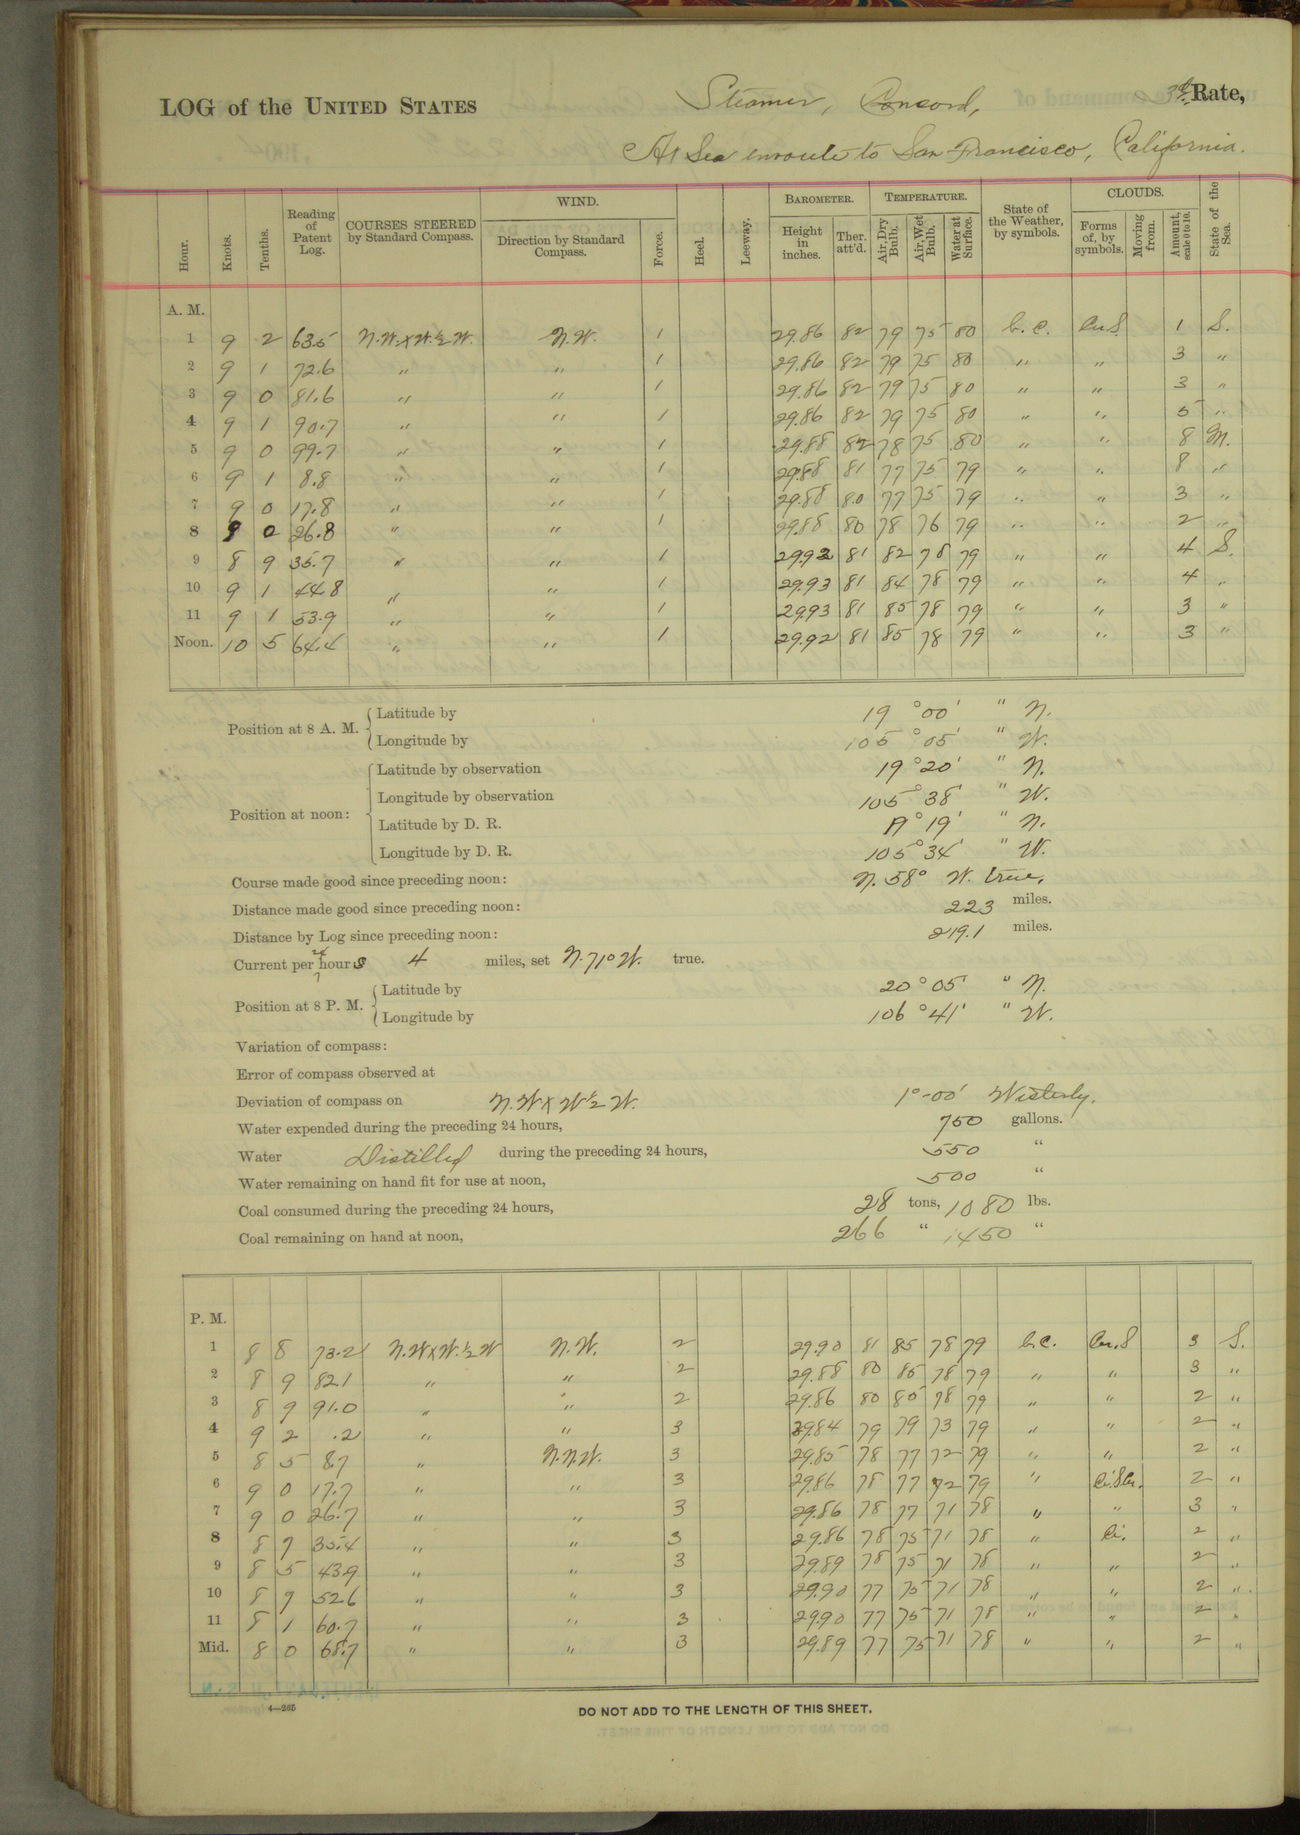 LOG of the UNITED STATES Steamer, Concord, 3d Rate,
At Sea enroute to San Francisco, California.
Hour. Knots. Tenths. Reading of Patent Log. COURSES STEERED by Standard Compass. WIND. Direction by Standard Compass. Force. Heel. Leeway. BAROMETER. Height in inches. Ther. att'd. TEMPERATURE. Air, Dry Bulb. Air, Wet Bulb. Water at Surface. State of the Weather, by symbols. CLOUDS. Forms of, by symbols. Moving from. Amount, scale 0 to 10. State of the Sea.
A. M.
1 9 2 63.5 N.W.xW.½W. N.W. 1 29.86 82 79 75 80 b.c. Cu.S. 1 S.
2 9 1 72.6 " " 1 29.86 82 79 75 80 " " 3 "
3 9 0 81.6 " " 1 29.86 82 79 75 80 " " 3 "
4 9 1 90.7 " " 1 29.86 82 79 75 80 " " 5 "
5 9 0 99.7 " " 1 29.88 82 78 75 80 " " 8 M.
6 9 1 8.8 " " 1 29.88 81 77 75 79 " " 8 "
7 9 0 17.8 " " 1 29.88 80 77 75 79 " " 3 "
8 9 0 26.8 " " 1 29.88 80 78 76 79 " " 2 "
9 8 9 35.7 " " 1 29.93 81 82 78 79 " " 4 S.
10 9 1 44.8 " " 1 29.93 81 84 78 79 " " 4 "
11 9 1 53.9 " " 1 29.93 81 85 78 79 " " 3 "
Noon. 10 5 64.4 " " 1 29.92 81 85 78 79 " " 3 "
Position at 8 A. M. Latitude by 19 ° 00' " N.
Longitude by 105 ° 05' " W.
Position at noon: Latitude by observation 19 ° 20' " N.
Longitude by observation 105 ° 38' " W.
Latitude by D. R. 19 ° 19' " N.
Longitude by D. R. 105 ° 34' " W.
Course made good since preceding noon: N. 58° W. true.
Distance made good since preceding noon: 223 miles.
Distance by Log since preceding noon: 219.1 miles.
Current per 24 hours 4 miles, set N. 71° W. true.
Position at 8 P. M. Latitude by 20 ° 05' " N.
Longitude by 106 ° 41' " W.
Variation of compass:
Error of compass observed at
Deviation of compass on N.W x W½ W. 1°-00' Westerly.
Water expended during the preceding 24 hours, 750 gallons.
Water Distilled during the preceding 24 hours, 550 "
Water remaining on hand fit for use at noon, 500 "
Coal consumed during the preceding 24 hours, 28 tons, 1080 lbs.
Coal remaining on hand at noon, 266 " 1450 "
P. M.
1 8 8 73.2 N.WxW.½W N.W. 2 29.90 81 85 78 79 b.c. Cu.S 3 S.
2 8 9 82.1 " " 2 29.88 80 85 78 79 " " 3 "
3 8 9 91.0 " " 2 29.86 80 80 78 79 " " 2 "
4 9 2 .2 " " 3 29.84 79 79 73 79 " " 2 "
5 8 5 8.7 " N.N.W. 3 29.85 78 77 72 79 " " 2 "
6 9 0 17.7 " " 3 29.86 78 77 72 79 " Ci.S.Cu. 2 "
7 9 0 26.7 " " 3 29.86 78 77 71 78 " " 3 "
8 8 7 35.4 " " 3 29.86 78 75 71 78 " Ci. 2 "
9 8 5 43.9 " " 3 29.89 78 75 71 78 " " 2 "
10 8 7 52.6 " " 3 29.90 77 75 71 78 " " 2 "
11 8 1 60.7 " " 3 29.90 77 75 71 78 " " 2 "
Mid. 8 0 68.7 " " 3 29.89 77 75 71 78 " " 2 "
4—265
DO NOT ADD TO THE LENGTH OF THIS SHEET.